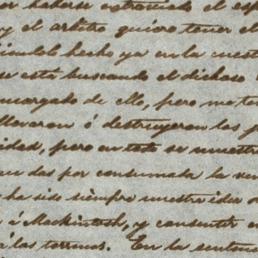 haberse entregado el esp
y el arbitro quiere tener el
hecho ya en la cuest
se está buscando el dichoso
encargado de ello, pero me te
llevaron ó destruyeron los p
idad, pero en esto se muestr
dar por consumada la ven
ha sido siempre nuestra idea
á Mackintosh, y consentir en
á los terrenos. En la sentenc